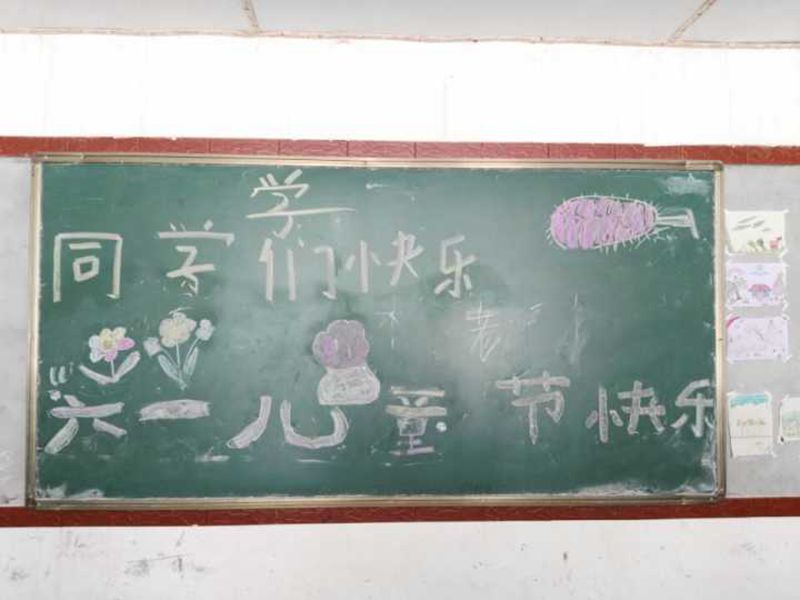 学
同学们快乐
六一儿童节快乐